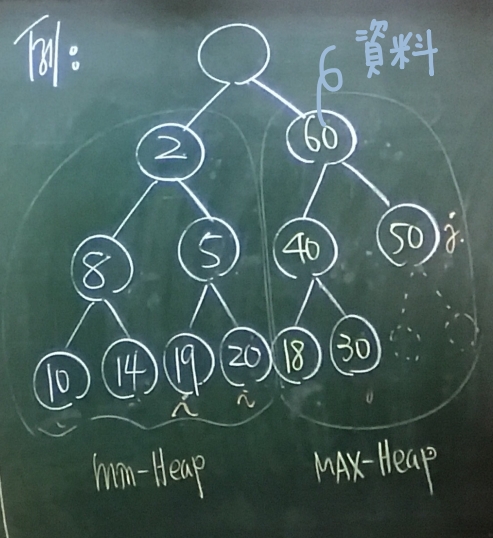 下列:
6 資料
2 60
8 5 40 50 j
10 14 19 20 18 30
i i
min-Heap MAX-Heap